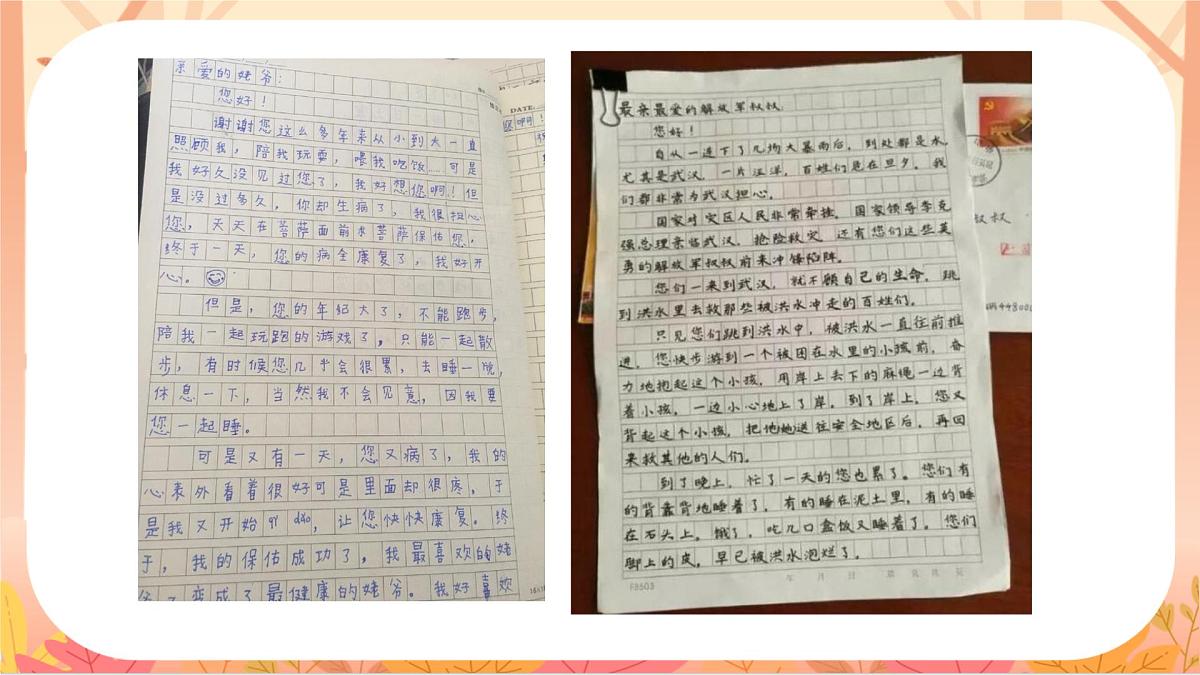 亲爱的姥爷：
您好！
谢谢您这么多年来从小到大一直
照顾我，陪我玩耍，喂我吃饭……可是
我好久没见过您了，我好想您啊！但
是没过多久，你却生病了，我很担心
您，天天在菩萨面前求菩萨保佑您，
终于一天，您的病全康复了，我好开
心。
但是，您的年纪大了，不能跑步，
陪我一起玩跑的游戏了，只能一起散
步，有时候您几乎会很累，去睡一晚，
休息一下，当然我不会见意，因我要
您一起睡。
可是又有一天，您又病了，我的
心表外看着很好可是里面却很疼，于
是我又开始qí dǎo，让您快快康复。终
于，我的保佑成功了，我最喜欢的姥
爷又变成了最健康的姥爷。我好喜欢
DATE:
最亲最爱的解放军叔叔：
您好！
自从一连下了几场大暴雨后，到处都是水，
尤其是武汉，一片汪洋，百姓们危在旦夕。我
们都非常为武汉担心。
国家对灾区人民非常牵挂。国家领导李克
强总理亲临武汉，抢险救灾，还有您们这些英
勇的解放军叔叔前来冲锋陷阵。
您们一来到武汉，就不顾自己的生命，跳
到洪水里去救那些被洪水冲走的百姓们。
只见您们跳到洪水中，被洪水一直往前推
进，您快步游到一个被困在水里的小孩前，奋
力地抱起这个小孩，用岸上丢下的麻绳一边背
着小孩，一边小心地上了岸。到了岸上，您又
背起这个小孩，把他她送往安全地区后，再回
来救其他的人们。
到了晚上，忙了一天的您也累了。您们有
的背靠背地睡着了，有的睡在泥土里，有的睡
在石头上。饿了，吃几口盒饭又睡着了。您们
脚上的皮，早已被洪水泡烂了。
年 月 日
F8503
叔叔